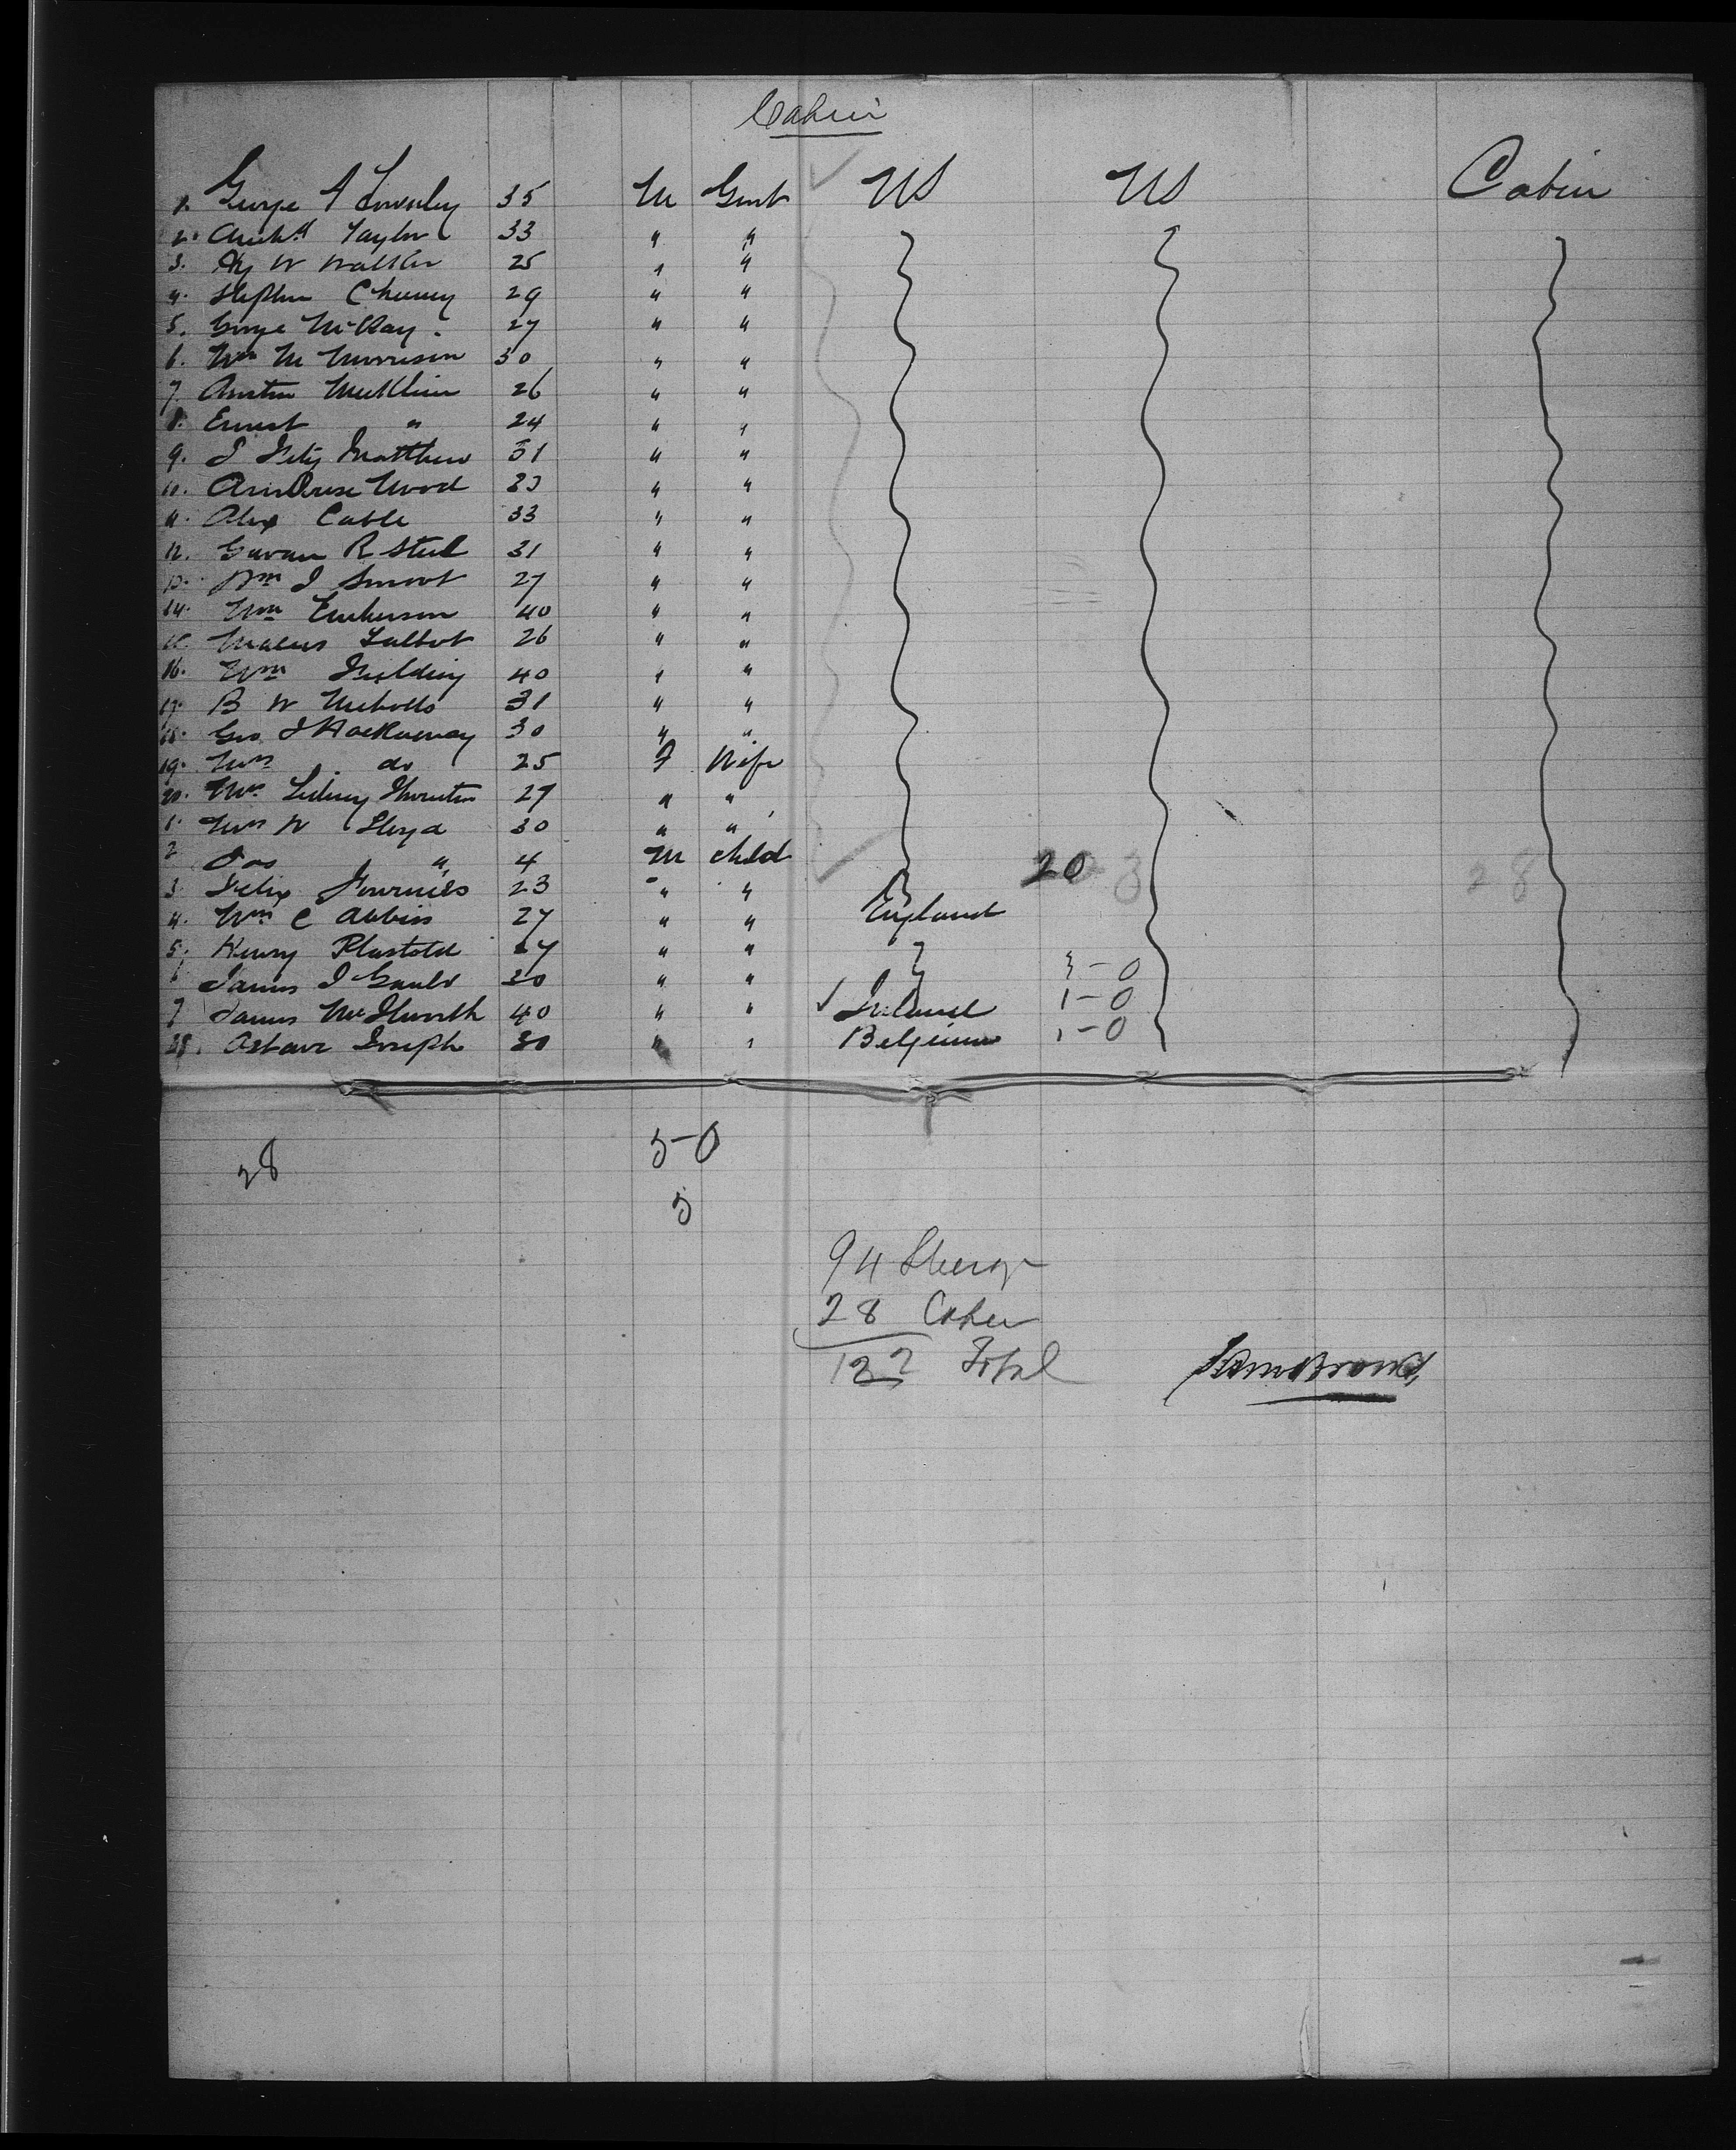 Cabin
1. George A Townley 35 M Gent US US Cabin
2. Archd Taylor 33 " "
3. Hy W Walker 25 " "
4. Stephen Cheney 29 " "
5. George McKay. 27 " "
6. Wm M Morrison 30 " "
7. Austin 26 " "
8. Ernest " 24 " "
9. Fitz Matthew 31 " "
10. Ambrose Wood 33 " "
11. Alex Cable 33 " "
12. Gavan R Steel 31 " "
13. Wm J Smoot 27 " "
14. Wm 40 " "
15. Talbot 26 " "
16. Wm Fielding 40 " "
17. B W Nicholls 31 " "
18. Geo J Hackaway 30 " "
19. Mrs do 25 F Wife
20. Mrs Sidney Thornton 27 " "
1. Mrs W Lloyd 30 " "
2 Jas " 4 M child 20 28
3. Felix 23 " "
4. Wm C Abbiss 27 " " England
5. Henry 27 " "
6 James J Gauld 30 " " 3-0
7 James McIlwrath 40 " " Ireland 1-0
28. Joseph 30 " " Belgium 1-0
28 5-0
5
94 Steerage
28 Cabin
122 Total